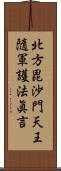 北方毘沙門天王
随軍護法真言